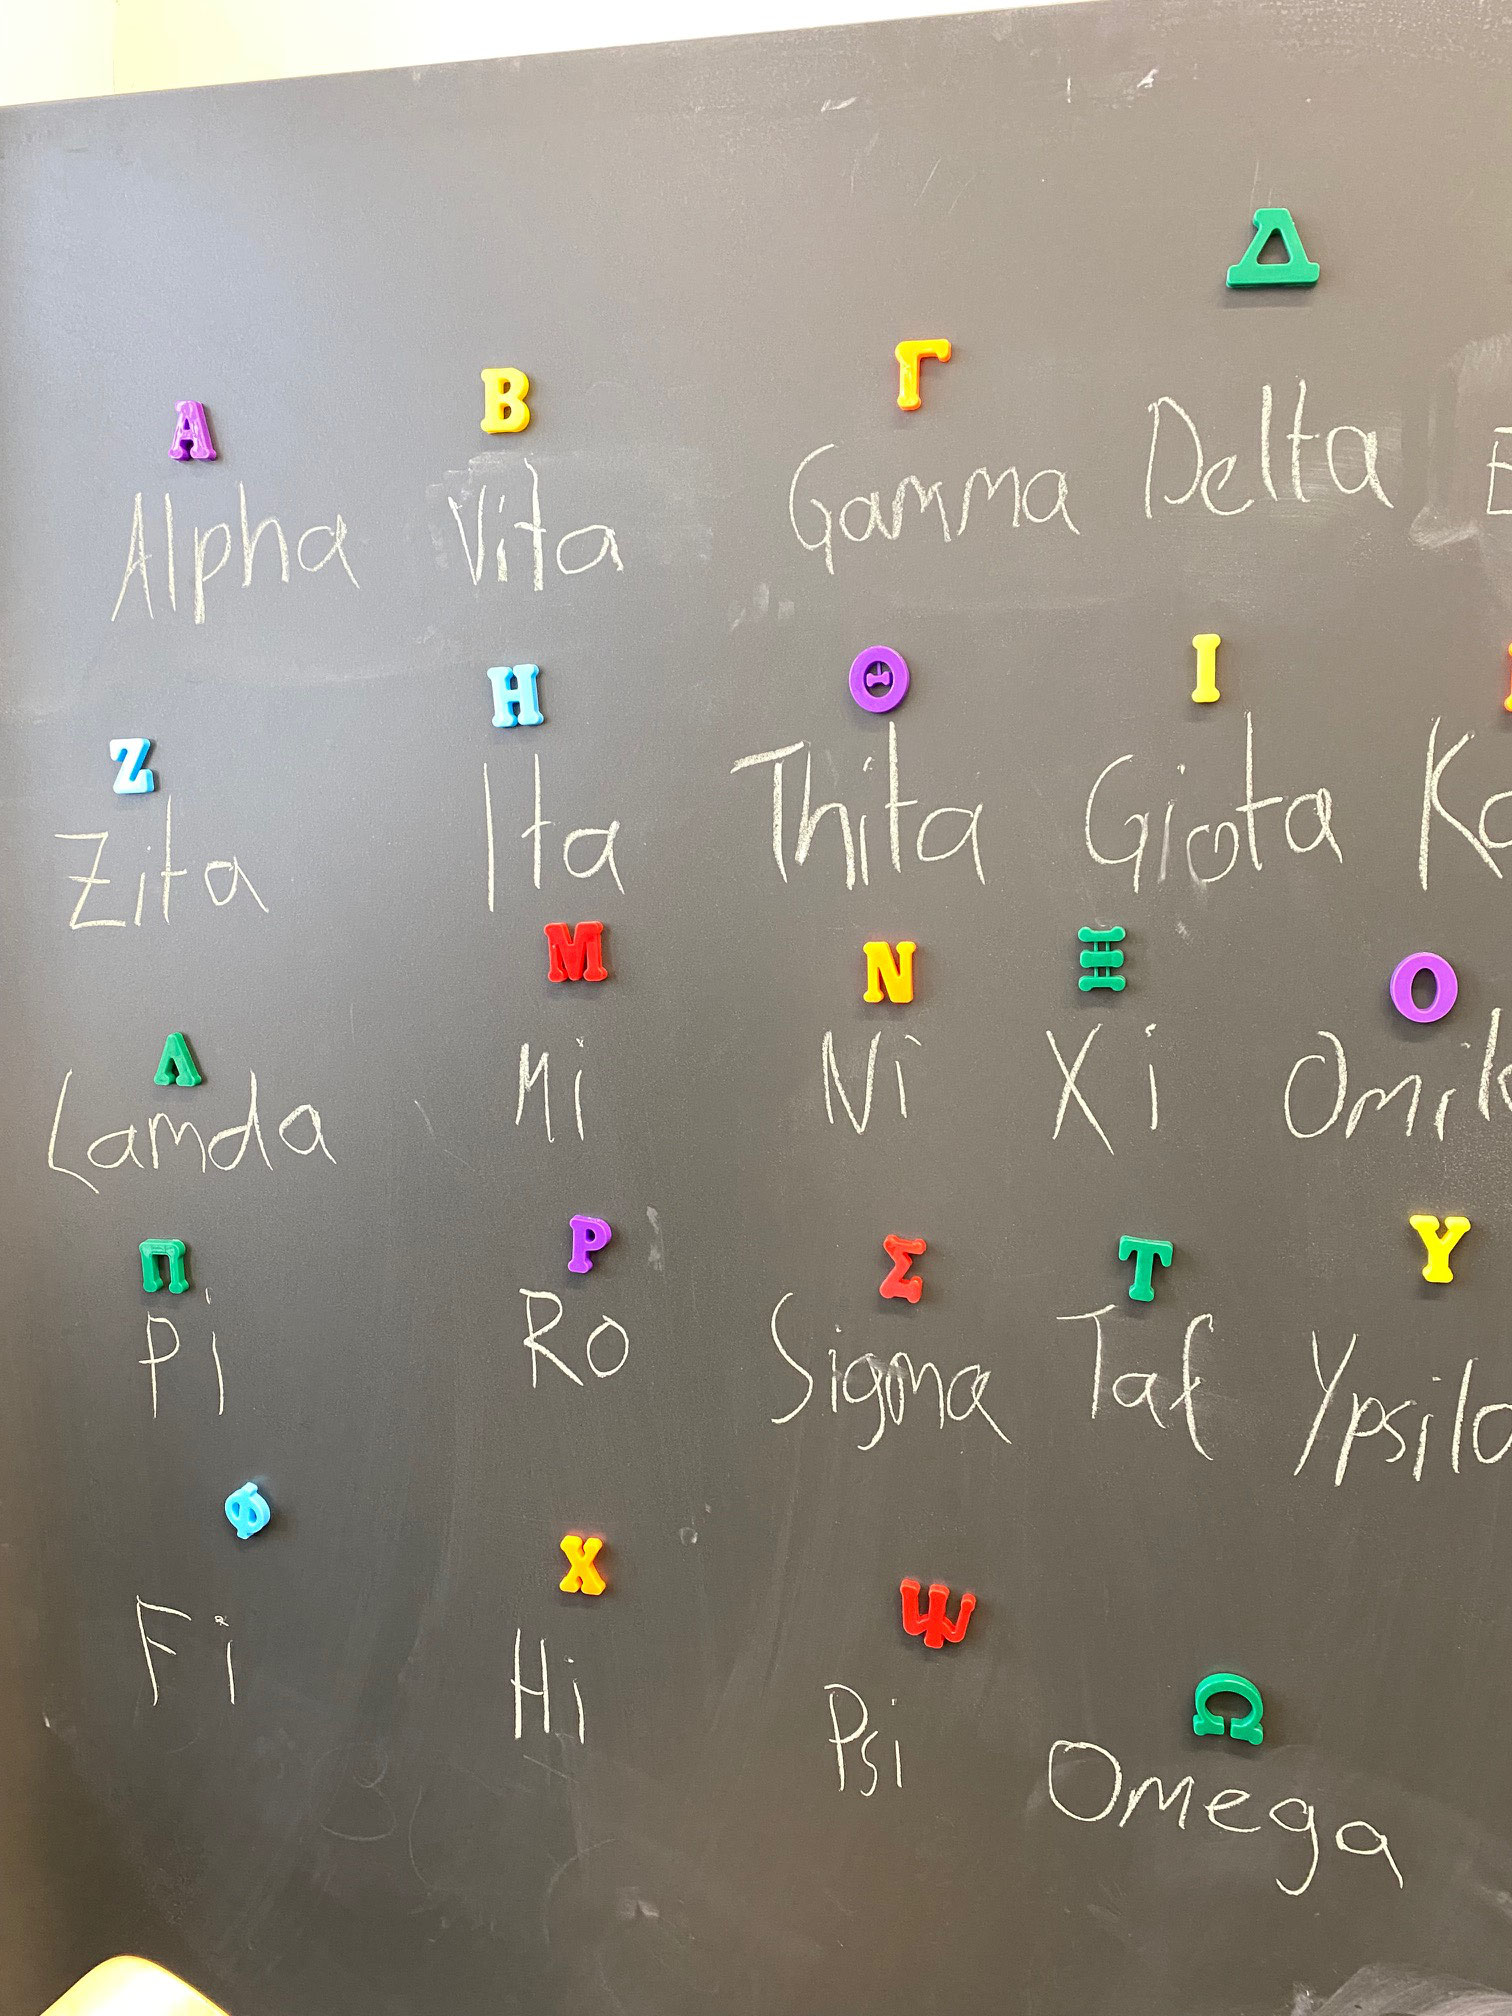 Α Β Γ Δ
Alpha Vita Gamma Delta
Ζ Η Θ Ι
Zita Ita Thita Giota
Λ Μ Ν Ξ Ο
Lamda Mi Ni Xi
Π Ρ Σ Τ Υ
Pi Ro Sigma Taf
Φ Χ Ψ Ω
Fi Hi Psi Omega